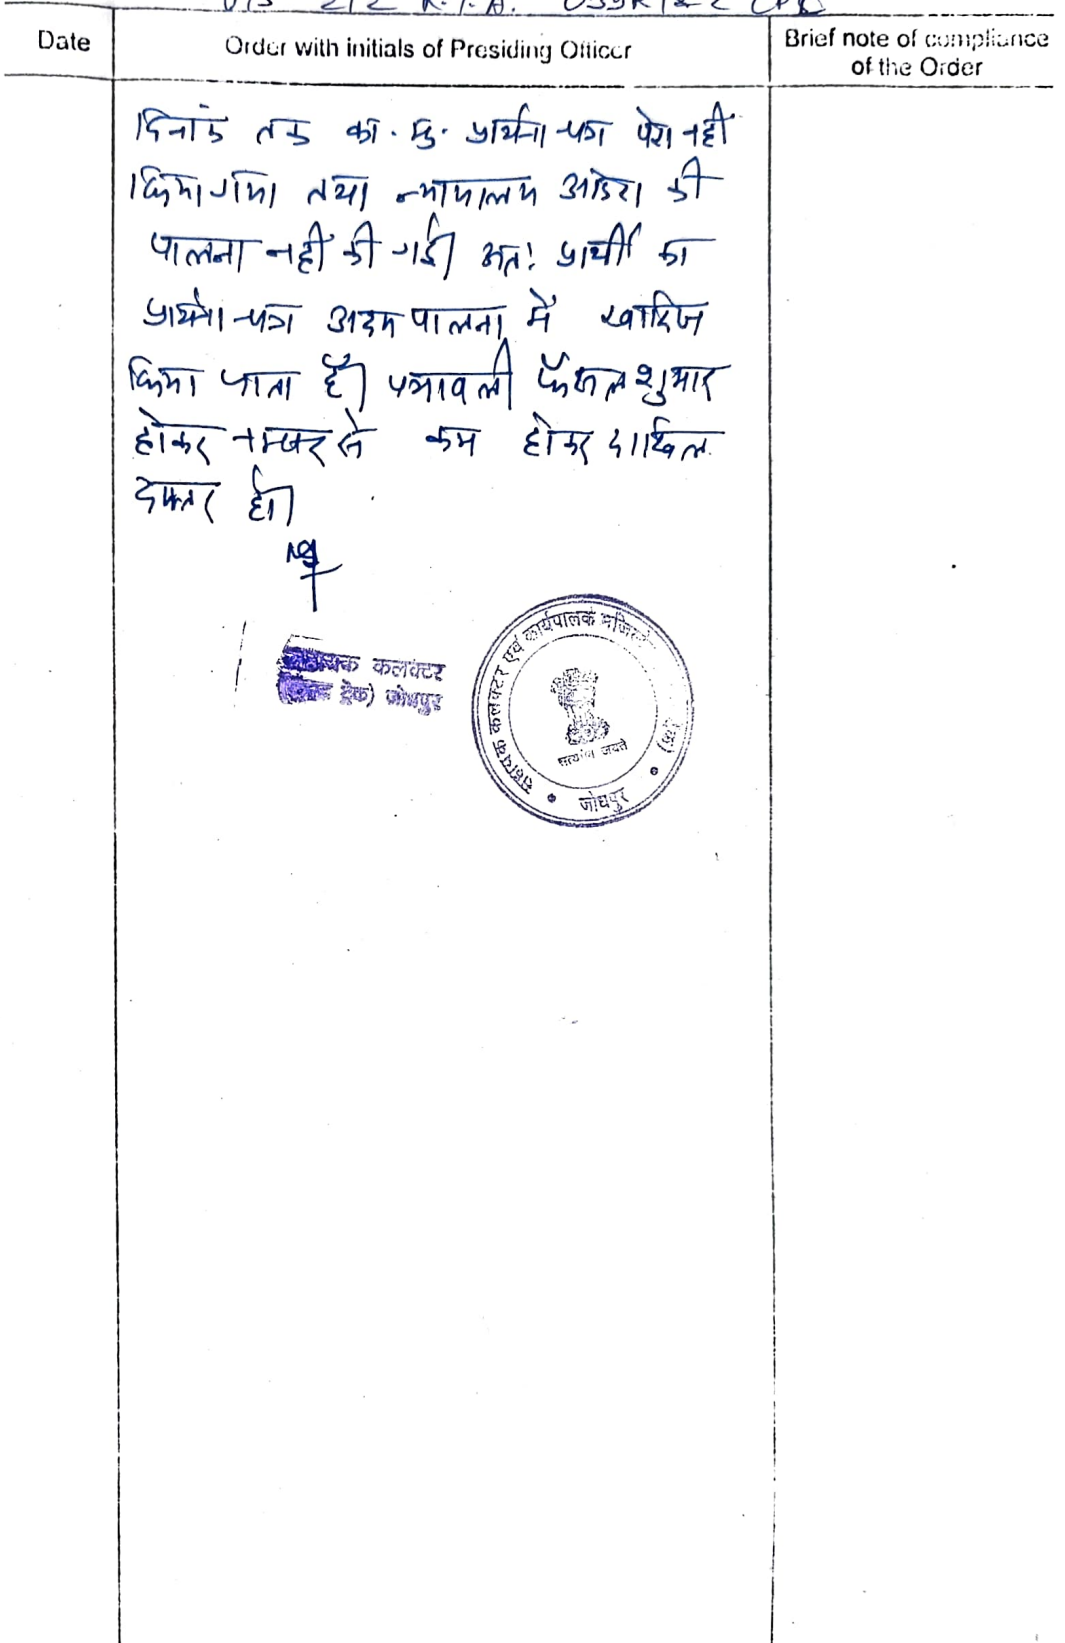 U/S 212 R.T.A. O39R1&2 CPC
Date
Order with initials of Presiding Officer
Brief note of compliance
of the Order
दिनांक तक का. मु. प्रार्थना-पत्र पेश नहीं
किया गया तथा न्यायालय आदेश की
पालना नहीं की गई। अतः प्रार्थी का
प्रार्थना-पत्र अदम पालना में खारिज
किया जाता है। पत्रावली फैसल शुमार
होकर नम्बर से कम होकर दाखिल
दफ्तर हो।
सहायक कलक्टर
ट्रेक) जोधपुर
सहायक कलक्टर एवं कार्यपालक
सत्यमेव जयते
जोधपुर